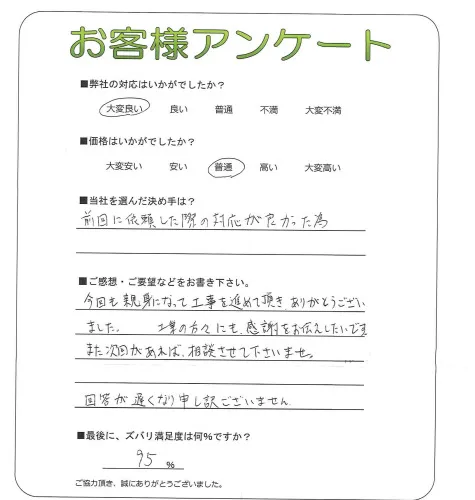 お客様アンケート
■弊社の対応はいかがでしたか？
大変良い 良い 普通 不満 大変不満
■価格はいかがでしたか？
大変安い 安い 普通 高い 大変高い
■当社を選んだ決め手は？
前回に依頼した際の対応が良かった為
■ご感想・ご要望などをお書き下さい。
今回も親身になって工事を進めて頂きありがとうござい
ました。 工事の方々にも、感謝をお伝えしたいです
また次回があれば、相談させて下さいませ。
回答が遅くなり申し訳ございません
■最後に、ズバリ満足度は何%ですか？
95 %
ご協力頂き、誠にありがとうございました。